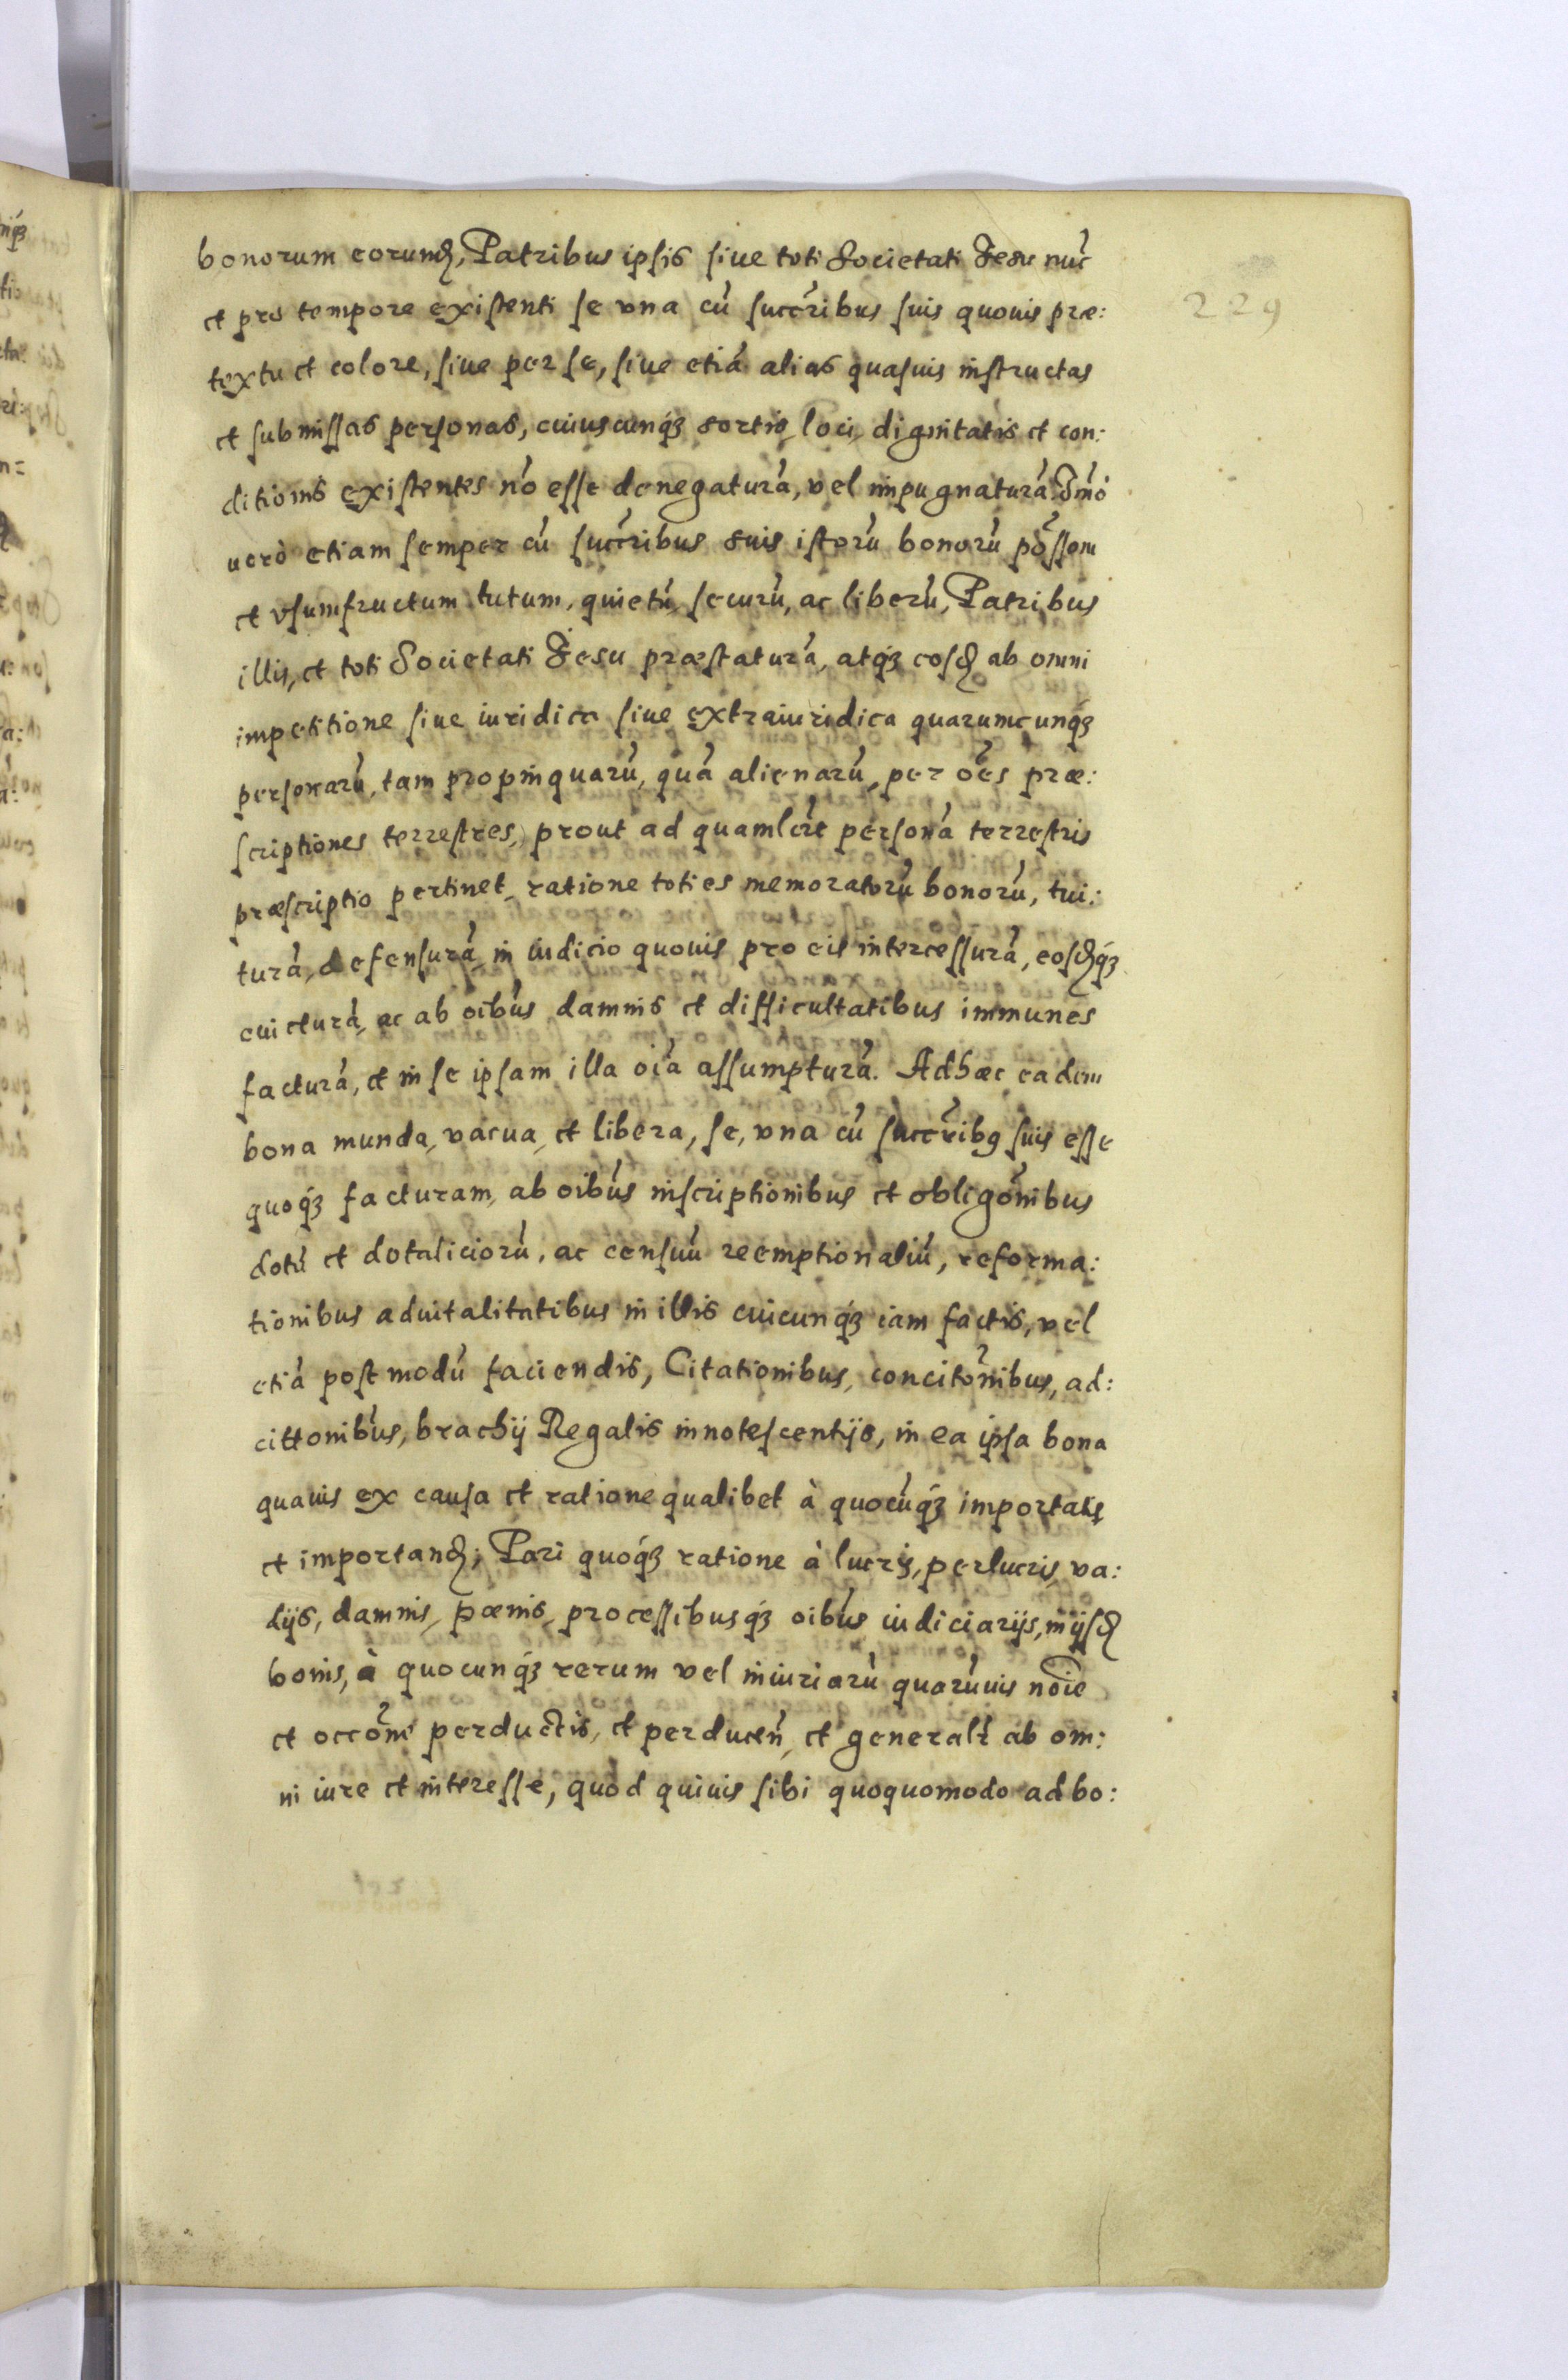 bonorum eorund, Patribus ipsis siue toti Societati Jesu nuc̄
229
et pro tempore existenti se vna cū succr̄ibus suis quouis præ:
textu et colore, siue per se, siue etiā alias quasuis instructas
et submissas personas, cuiuscunq́ȝ sortis, loci, dignitatis et con:
ditionis existentes nō esse denegaturā, vel impugnaturā. Im̄ò
uerò etiam semper cū succr̄ibus suis istorū bonorū pōssem
et vsumfructum tutum, quietū, securū, ac liberū, Patribus
illis, et toti Societati Jesu præstaturā, atq́ȝ eosd ab omni
impetitione siue iuridica siue extraiuridica quarumcunq́ȝ
personarū, tam propinquarū, quā alienarū, per oēs præ:
scriptiones terrestres, prout ad quamlcīt personā terrestris
præscriptio pertinet, ratione toties memoratorū bonorū, tui:
turā, defensurā, in iudicio quouis pro eis intercessurā, eosdq́ȝ
euicturā, ac ab oībus damnis et difficultatibus immunes
facturā, et in se ipsam illa oīa assumpturā. Adhæc eadem
bona munda, vacua, et libera, se, vna cū succr̄ibꝯ suis esse
quoq́ȝ facturam, ab oībus inscriptionibus et obligōnibus
dotū et dotaliciorū, ac censuū reemptionaliū, reforma:
tionibus aduitalitatibus in illis cuicunq́ȝ iam factis, vel
etiā postmodū faciendis, Citationibus, concitōnibus, ad:
cittonibus, brachij Regalis innotescentijs, in ea ipsa bona
quauis ex causa et ratione qualibet à quocūq́ȝ importatis
et importand; Pari quoq́ȝ ratione à lucris, perlucris, va:
dijs, damnis, pœnis, processibusq́ȝ oībus iudiciarijs, in ijsd
bonis, à quocunq́ȝ rerum vel iniuriarū quarūuis nōie
et occōne perductis, et perducen̄, et generalr̄ ab om:
ni iure et interesse, quòd quiuis sibi quoquomodo ad bo: